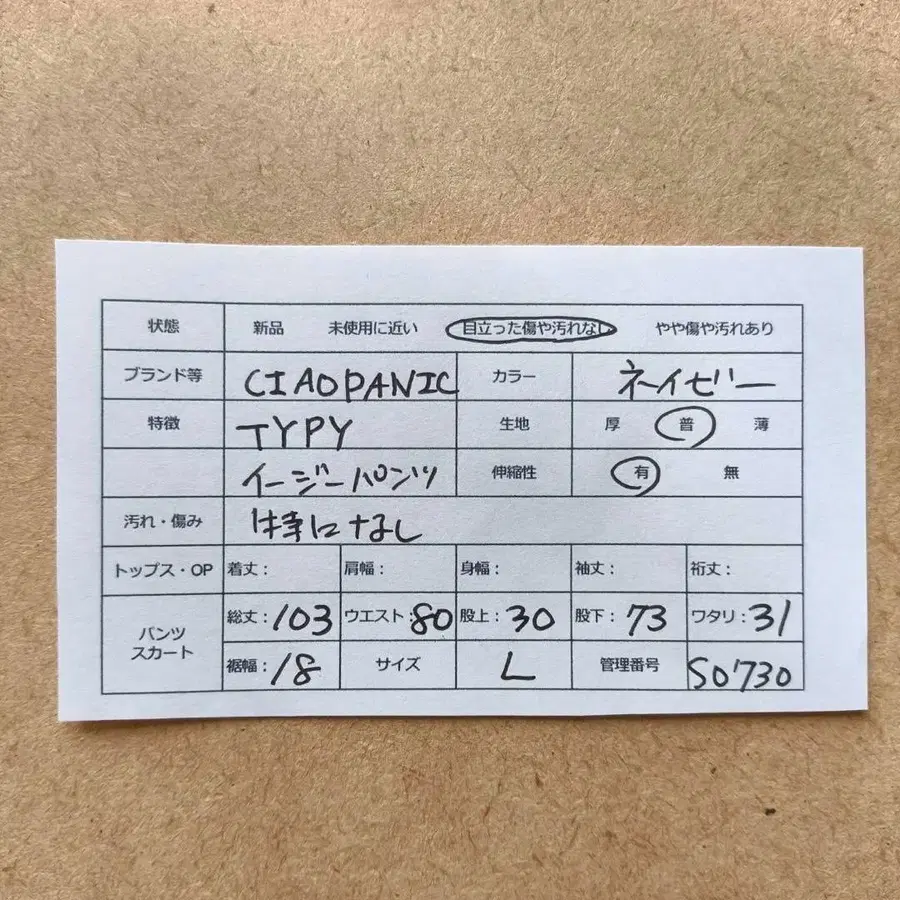 状態 新品 未使用に近い 目立った傷や汚れなし やや傷や汚れあり
ブランド等 CIAOPANIC カラー ネイビー
特徴 TYPY 生地 厚 普 薄
イージーパンツ 伸縮性 有 無
汚れ・傷み 特になし
トップス・OP 着丈： 肩幅： 身幅： 袖丈： 裄丈：
パンツ スカート 総丈：103 ウエスト：80 股上：30 股下：73 ワタリ：31
裾幅：18 サイズ L 管理番号 S0730